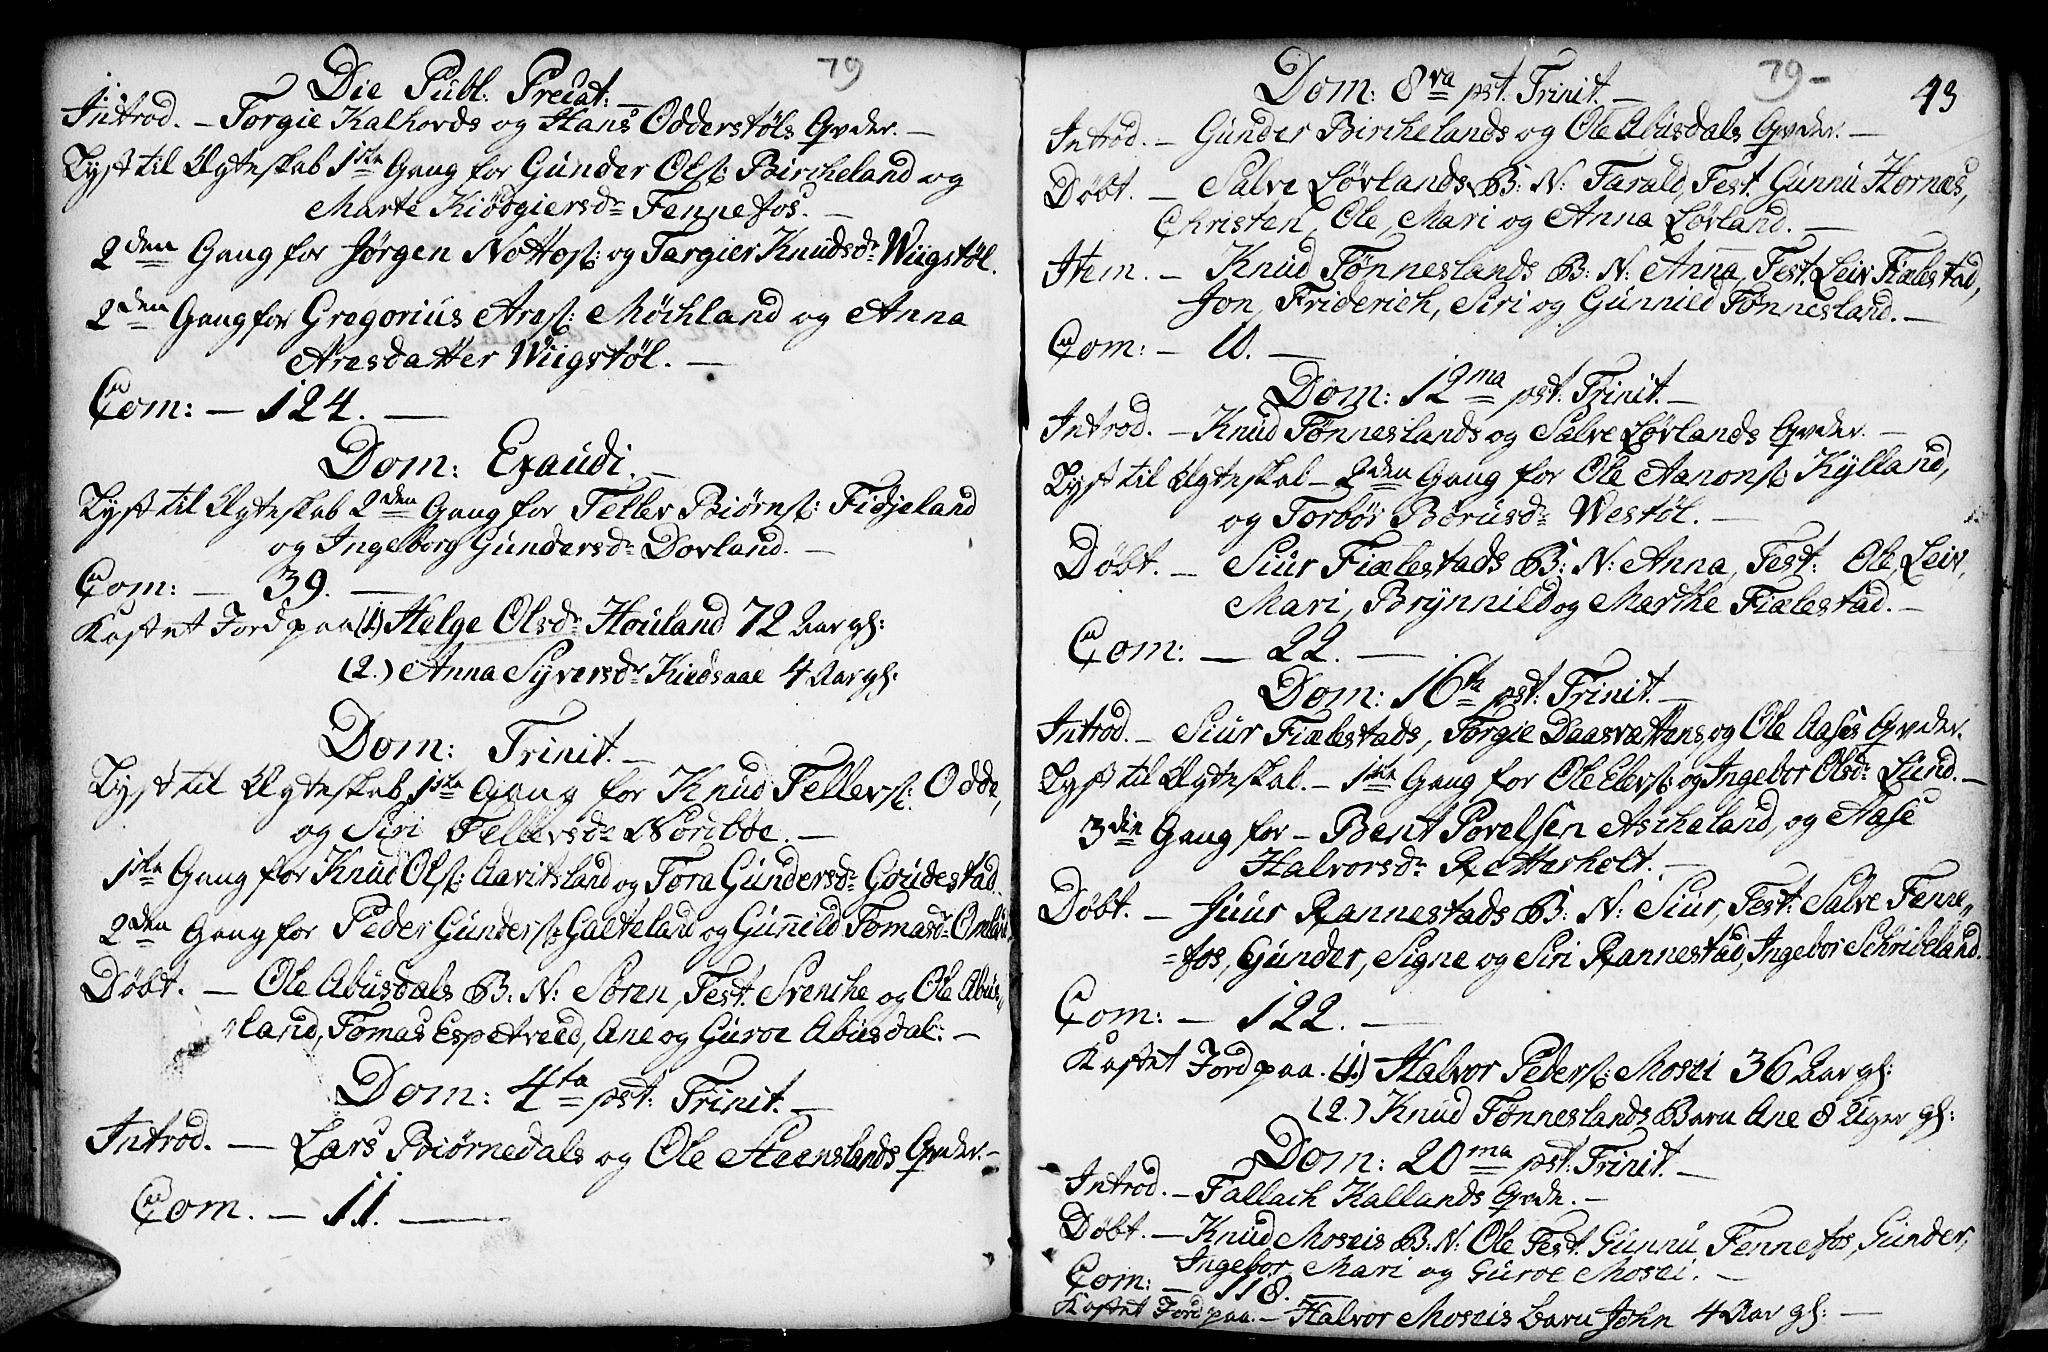 79
Die Publ: Precat: —
Introd. — Torgie Kalhovds og Hans Odderstøls Qvder. —
Lyst til Ægteskab 1ste Gang for Gunder Ols: Bircheland og
Marte Kiødgiersdr Fennefos. —
2den Gang for Jørgen Nottos: og Targier Knudsdr Wiigstøl.
2den Gang for Gregorius Ares: Møchland og Anna
Aresdatter Wiigstøl. —
Com: — 124. —
Dom: Exaudi. —
Lyst til Ægteskab 2den Gang for Tellev Biørns: Fidjeland
og Ingeborg Gundersdr Dovland. —
Com: — 39. —
Kastet Jord paa (1.) Helge Olsdr Houland 72 Aar gl:
(2.) Anna Syversdr Kiedsaae 4 Aar gl:
Dom: Trinit. —
Lyst til Ægteskab 1ste Gang for Knud Tellevs: Odde,
og Siri Tellevsdr Noribøe. —
1ste Gang for Knud Ols: Aavitsland og Tora Gundersdr Goudestad.
2den Gang for Peder Gunders: Galteland og Gunnild Tomasdr Omland
Døbt. — Ole Abusdals B: N: Søren, Test: Svenche og Ole Abus-
land, Tomas Espetveed, Ane og Guroe Abusdal: —
Dom: 4ta pst: Trinit. —
Introd. — Lars Biørnedals og Ole Steenslands Qvder. —
Com. — 11. —
79 –
43
Dom: 8va pst: Trinit. —
Introd. — Gunder Birchelands og Ole Abusdals Qvder. —
Døbt. — Salve Løvlands B: N: Tarald, Test. Gunnu Hornæs,
Christen, Ole, Mari og Anna Løvland. —
Item. — Knud Tønneslands B: N: Anna, Test: Leiv Fialestad,
Jon, Friderich, Siri og Gunnild Tønnesland. —
Com: — 10. —
Dom: 12ma pst: Trinit. —
Introd. — Knud Tønneslands og Salve Løvlands Qvder. —
Lyst til Ægteskab — 2den Gang for Ole Aanons: Kylland,
og Torbor Børusdr Westøl. —
Døbt. — Siur Fialestads B: N: Anna, Test: Ole, Leiv,
Mari, Brynnild og Marthe Fialestad. —
Com: — 22. —
Dom: 16ta pst: Trinit. —
Introd. — Siur Fialestads, Torgie Daasvattens, og Ole Aases Qvder.
Lyst til Ægteskab. — 1ste Gang for Ole Elevs: og Ingebor Olsdr Lund. —
3die Gang for — Bent Povelsen Ascheland, og Aase
Halvorsdr Retterholt. —
Døbt. — Juur Rannestads B: N: Siur, Test: Salve Fenne-
=fos, Gunder, Signe og Siri Rannestad, Ingebor Schribeland.
Com: — 122. —
Kastet Jord paa. (1.) Halvor Peders: Mosei 36 Aar gl:
(2.) Knud Tønneslands Barn Ane 8 Uger gl:
Dom: 20ma pst: Trinit. —
Introd. — Tallach Kallands Qvde. —
Døbt. — Knud Moseis B: N: Ole Test: Gunnu Fennefos, Gunder,
Ingebor, Mari og Guroe Mosei. —
Com: — 118. —
Kastet Jord paa. — Halvor Moseis Barn John 4 Aar gl: —